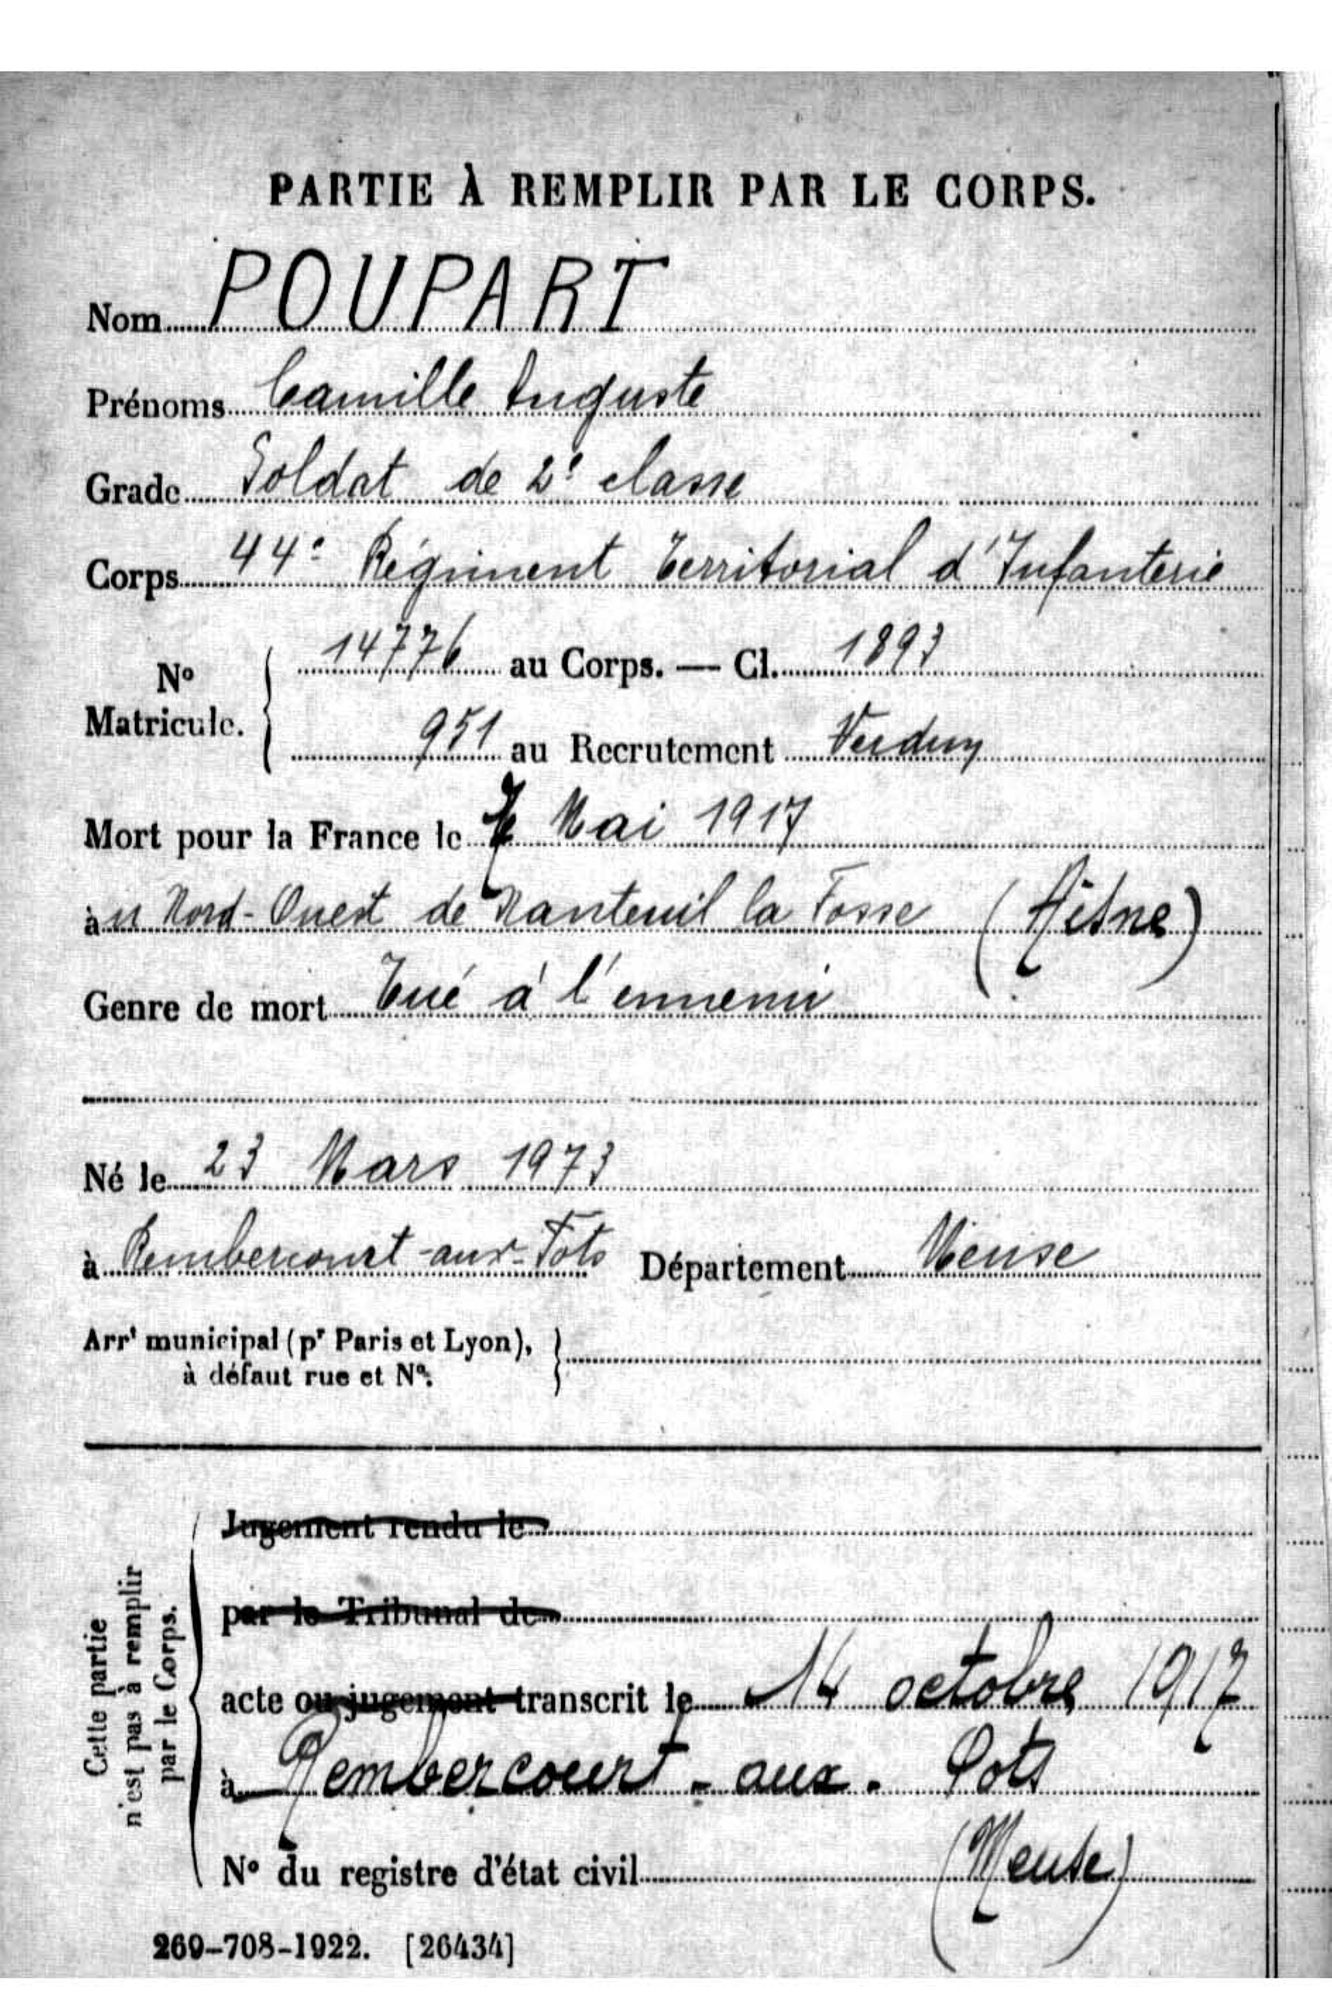 PARTIE À REMPLIR PAR LE CORPS.
Nom POUPART
Prénoms Camille Auguste
Grade Soldat de 2e classe
Corps 44e Régiment Territorial d'Infanterie
No Matricule. 14776 au Corps. — Cl. 1893
951 au Recrutement Verdun
Mort pour la France le 7 Mai 1917
àu Nord-Ouest de Nanteuil la Fosse (Aisne)
Genre de mort Tué à l'ennemi
Né le 23 Mars 1973
à Rembercourt-aux-Pots Département Meuse
Arrt municipal (pr Paris et Lyon),
à défaut rue et No.
Cette partie
n'est pas à remplir
par le Corps.
Jugement rendu le
par le Tribunal de
acte ou jugement transcrit le 14 octobre 1917
à Rembercourt-aux-Pots
(Meuse)
No du registre d'état civil
269-708-1922. [26434]